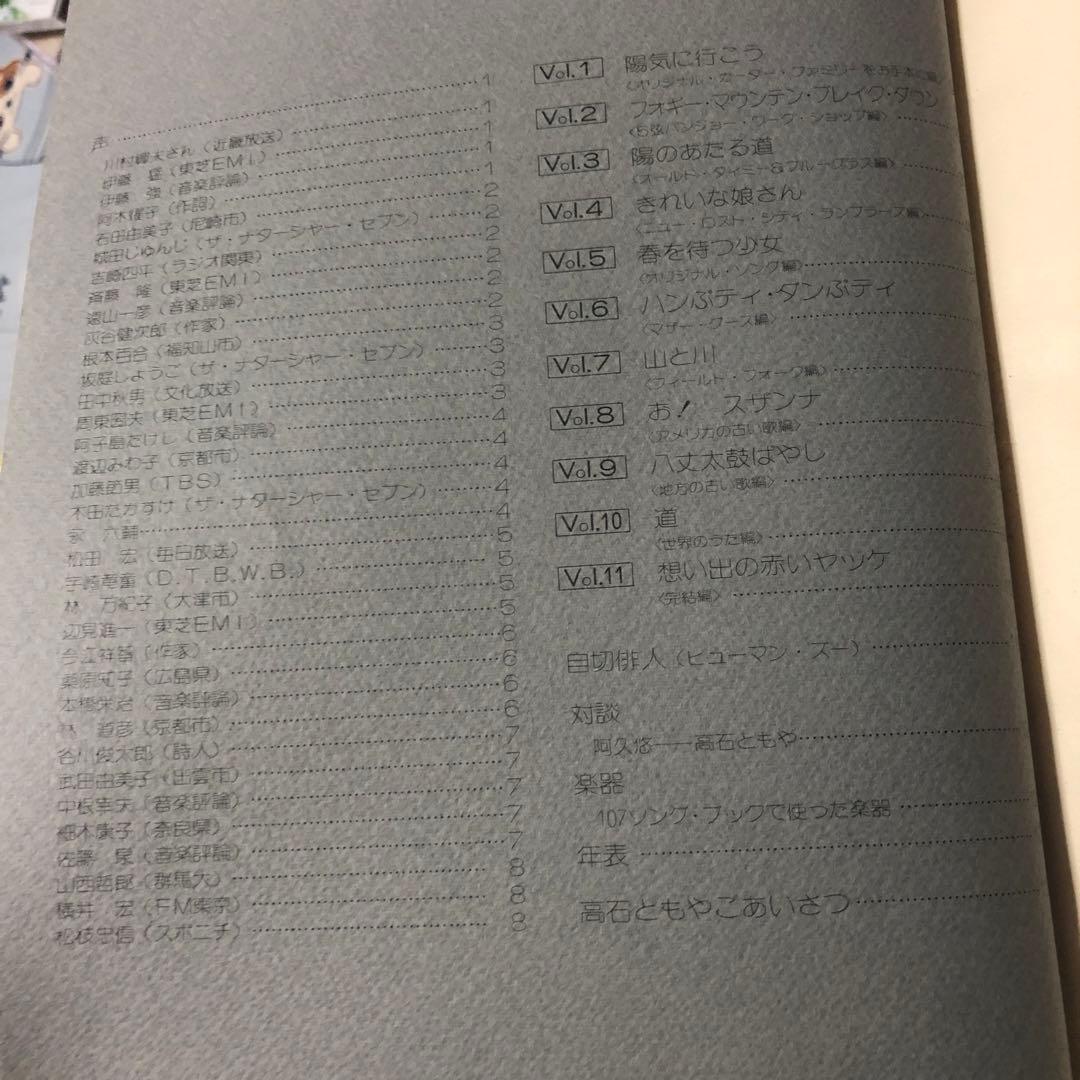 声 1
川村輝夫さん（近畿放送） 1
伊藤 強（音楽評論） 1
（東芝EMI） 1
（作詞） 2
石田由美子（尼崎市） 2
城田じゅんじ（ザ・ナターシャー・セブン） 2
吉崎四平（ラジオ関東） 2
斎藤 隆（東芝EMI） 2
遠山一彦（音楽評論） 2
灰谷健次郎（作家） 3
根本百合（福知山市） 3
坂庭しょうご（ザ・ナターシャー・セブン） 3
田中秋男（文化放送） 3
（東芝EMI） 4
阿子島たけし（音楽評論） 4
渡辺みわ子（京都市） 4
加藤節男（TBS） 4
木田たかすけ（ザ・ナターシャー・セブン） 4
永 六輔 5
松田 宏（毎日放送） 5
宇崎竜童（D.T.B.W.B.） 5
林 万紀子（大津市） 5
辺見進一（東芝EMI） 6
今江祥智（作家） 6
桑原知子（広島県） 6
本橋栄治（音楽評論） 6
林 （京都市） 7
谷川俊太郎（詩人） 7
武田由美子（出雲市） 7
中根幸夫（音楽評論） 7
細木康子（奈良県） 7
佐藤 （音楽評論） 8
山西哲郎（群馬大） 8
横井 宏（FM東京） 8
松枝忠信（スポニチ）
Vol.1 陽気に行こう
〈オリジナル・カーター・ファミリーをお手本に編〉
Vol.2 フォギー・マウンテン・ブレイク・ダウン
〈5弦バンジョー・ワーク・ショップ編〉
Vol.3 陽のあたる道
〈オールド・タイミー＆ブルーグラス編〉
Vol.4 きれいな娘さん
〈ニュー・ロスト・シティ・ランブラーズ編〉
Vol.5 春を待つ少女
〈オリジナル・ソング編〉
Vol.6 ハンぷティ・ダンぷティ
〈マザー・グース編〉
Vol.7 山と川
〈フィールド・フォーク編〉
Vol.8 お！ スザンナ
〈アメリカの古い歌編〉
Vol.9 八丈太鼓ばやし
〈地方の古い歌編〉
Vol.10 道
〈世界のうた編〉
Vol.11 想い出の赤いヤッケ
〈完結編〉
自切俳人（ヒューマン・ズー）
対談
阿久悠――高石ともや
楽器
107ソング・ブックで使った楽器
年表
高石ともやごあいさつ